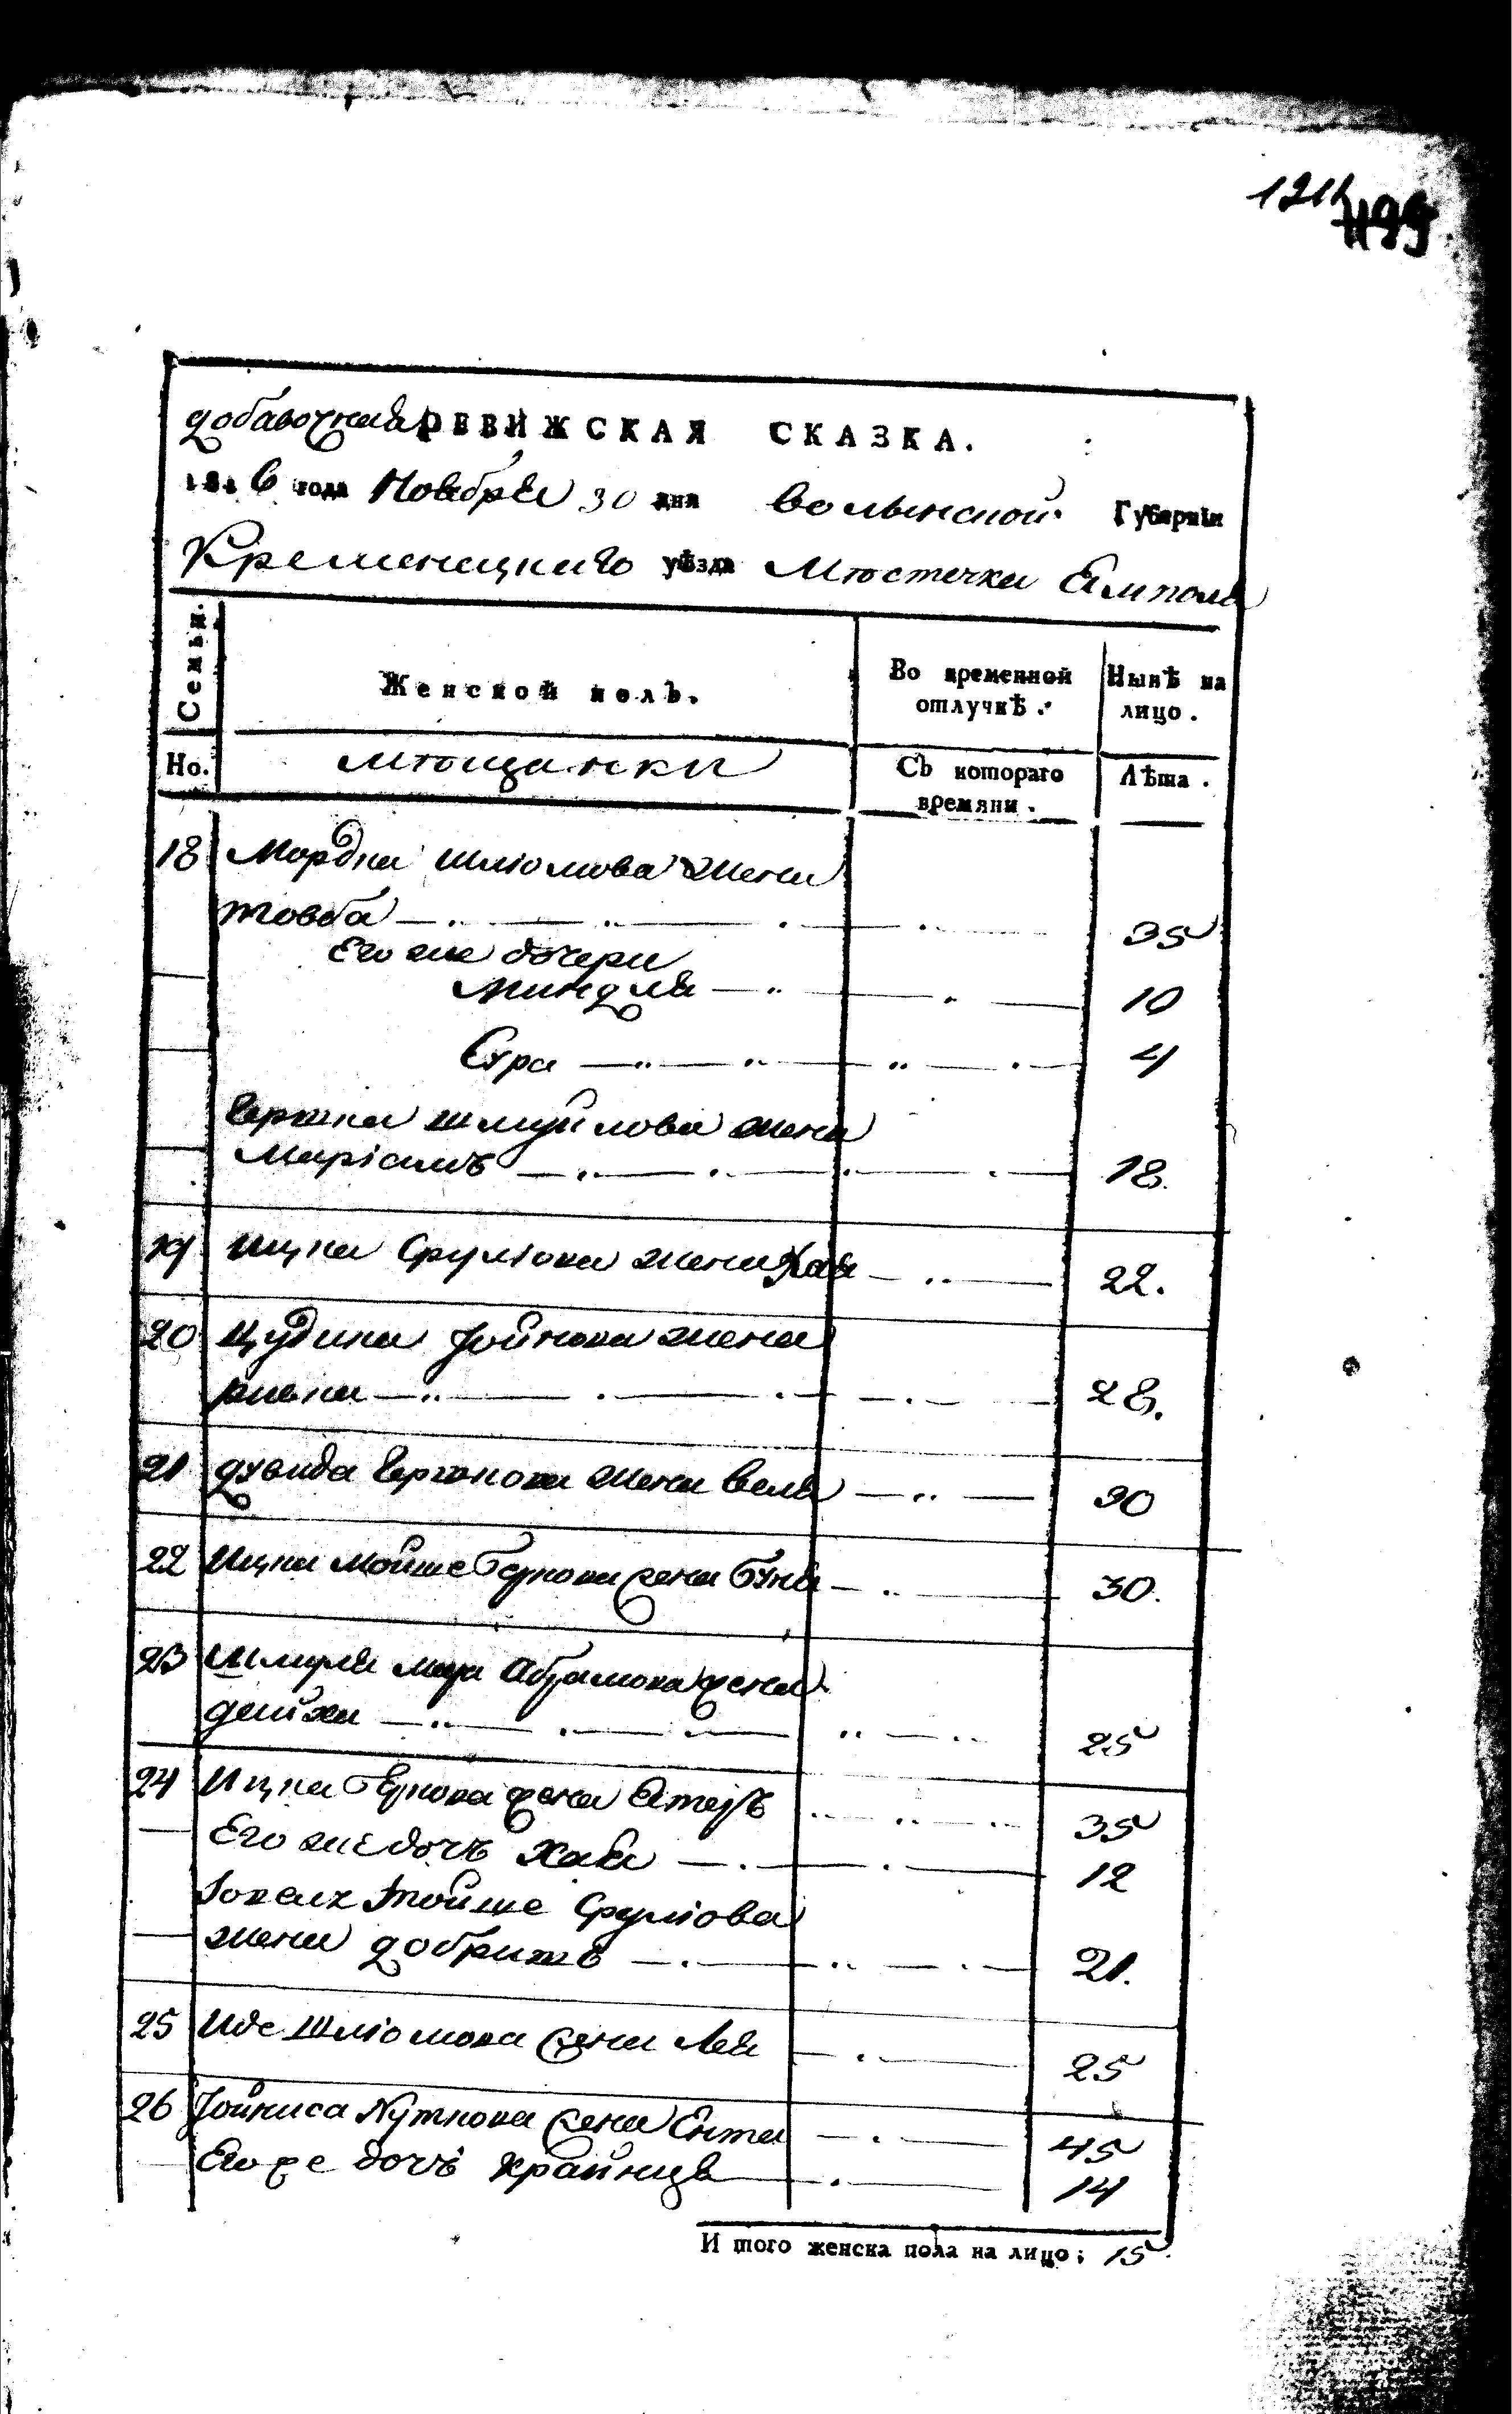 1212
1199
добавочная РЕВИЖСКАЯ СКАЗКА.
1816 года Ноября 30 дня Волынской Губерніи
Кременецкаго уѣзда Мѣстечка Ямполя
Семьи. Женской полъ. Во временной отлучкѣ. Нынѣ на лицо.
Но. мѣщански Съ котораго времяни. Лѣта.
18 Мордка Шліомова жена
товба 35
Его же дочери
Миндля 10
Сура 4
Шмуйлова жена
Маріамъ 18.
19 Ицка Сруліова жена Хая 22.
20 Іойнова жена
ривка 28.
21 Давида жена Бейля 30
22 Ицка Мойше Беркова жена 30.
23 Шмуля Абрамова жена
25
24 Ицка Беркова жена Естеръ 35
Его же дочь Хая 12
Мойше Сруліова
жена добришъ 21.
25 Шліомова жена Лея 25
26 Нуткова жена Ента 45
Его же дочь Крайнця 14
И того женска пола на лицо: 15.